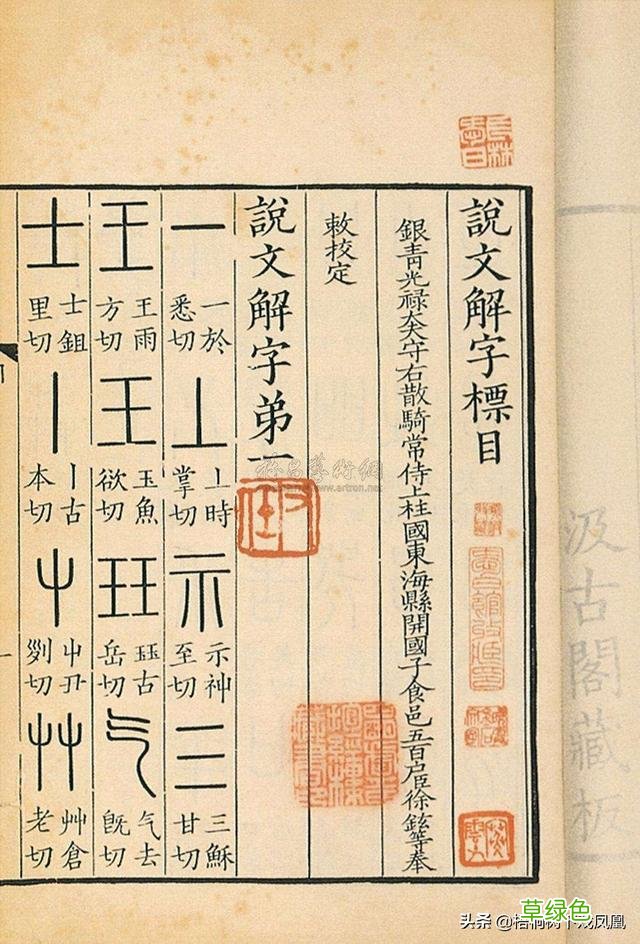 汲古閣藏板
說文解字標目
銀青光祿大夫守右散騎常侍上柱國東海縣開國子食邑五百户臣徐鉉等奉
敕校定
說文解字弟一
一 一於悉切 丄 丄時掌切 示 示神至切 三 三穌甘切
王 王雨方切 王 玉魚欲切 玨 玨古岳切 气 气去旣切
士 士鉏里切 丨 丨古本切 屮 屮丑列切 艸 艸倉老切
雅昌藝術網
www.artron.net
草绿色
头条 @梧桐树下戏凤凰